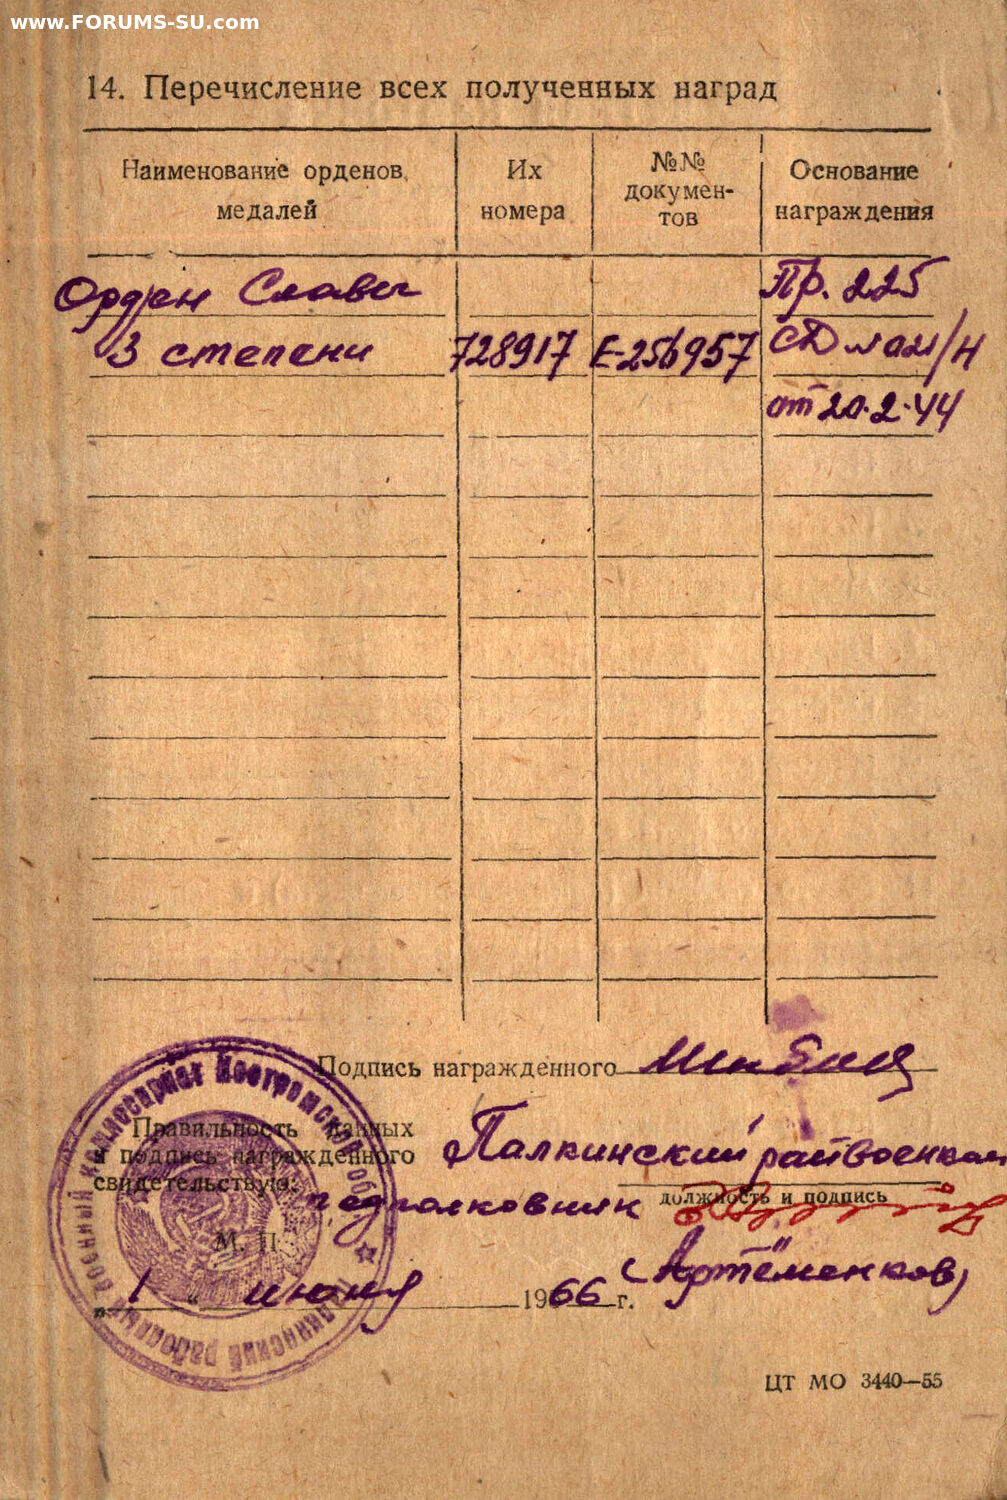 www.FORUMS-SU.com
14. Перечисление всех полученных наград
Наименование орденов,
медалей
Их
номера
№№
докумен-
тов
Основание
награждения
Орден Славы
3 степени
728917
Е-256957
Пр. 225
СД нам/н
от 20.2.44
Подпись награжденного
Правильность данных
и подпись награжденного
свидетельствую:
Палкинский райвоенком
подполковник
должность и подпись
М. П.
(Артёменков)
„ 1 “ июня 1966 г.
военный комиссариат Костромской обл.
Палкинский районный
ЦТ МО 3440—55